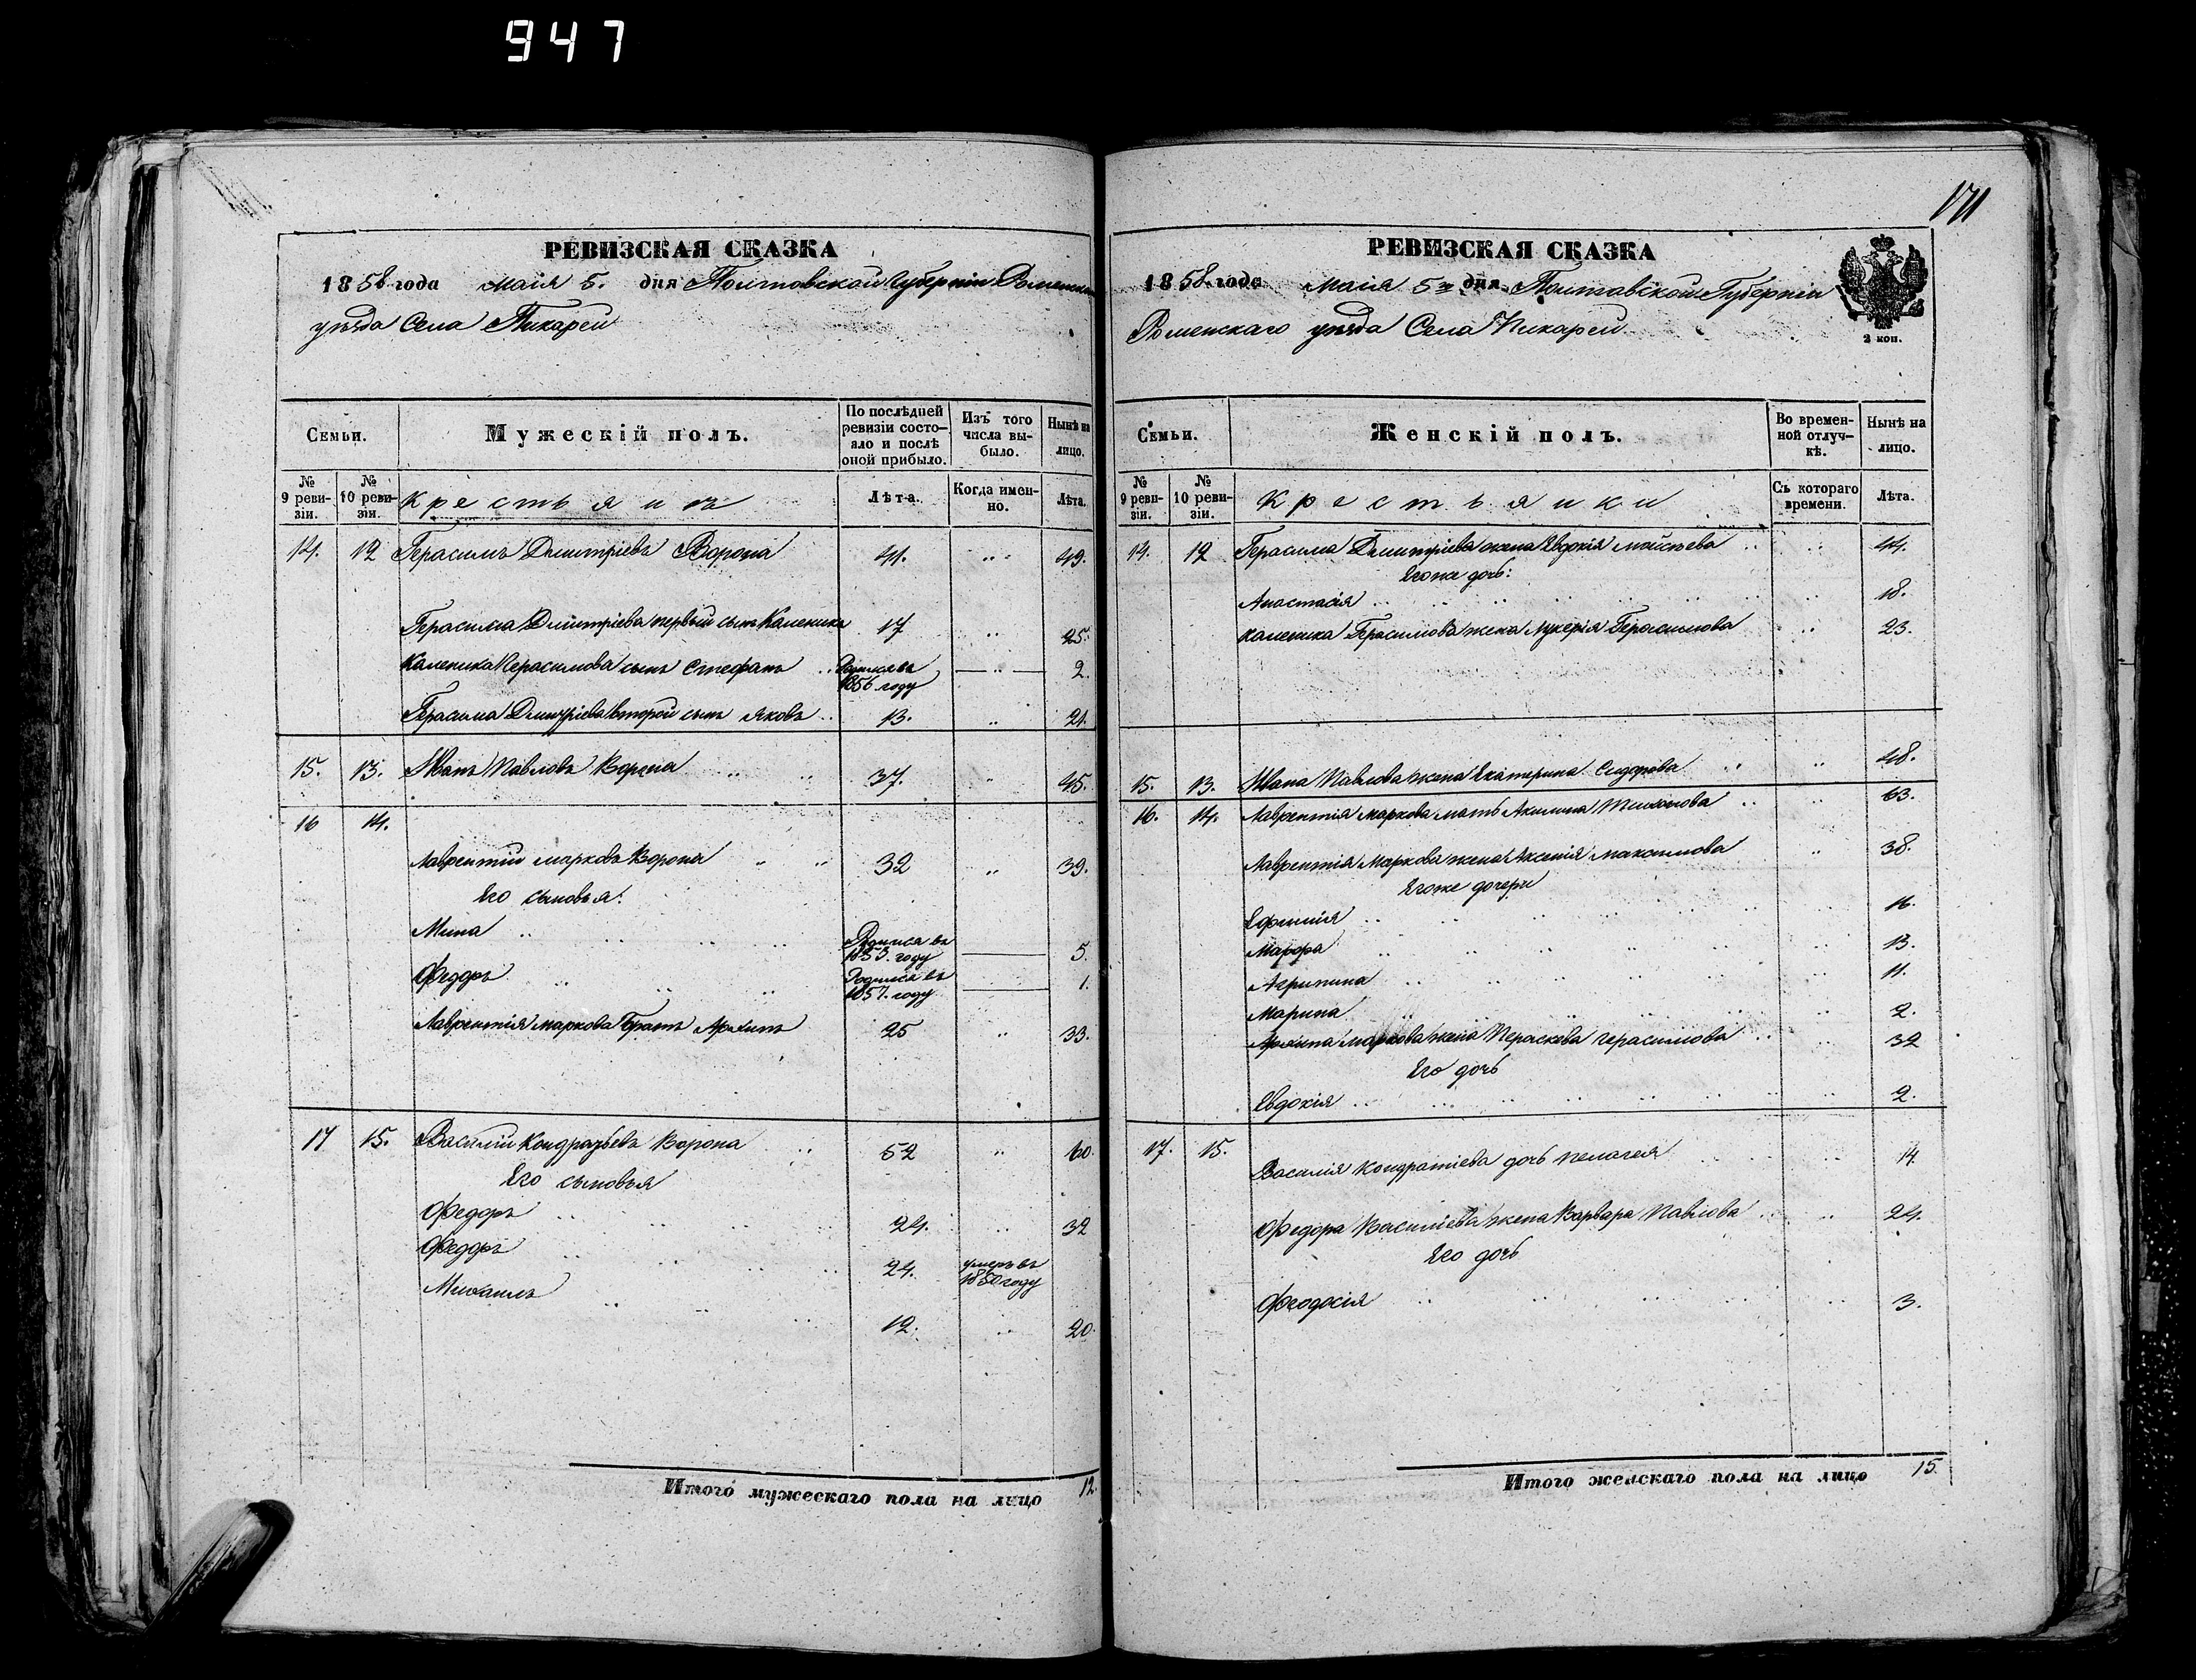 947
171
РЕВИЗСКАЯ СКАЗКА
1858 года маія 5. дня Полтавской Губерніи Роменскаго
уѣзда Села Пикарей
Семьи.
Мужескій полъ.
По послѣдней ревизіи состояло и послѣ оной прибыло.
Изъ того числа выбыло.
Нынѣ на лицо.
№ 9 ревизіи.
№ 10 ревизіи.
Крестьянъ
Лѣта.
Когда именно.
Лѣта.
14. 12 Герасимъ Дмитріевъ Ворона 41. 49.
Герасима Дмитріева первый сынъ Каленикъ 17 25.
Каленика Герасимова сынъ Стефанъ Родился въ 1856 году 2.
Герасима Дмитріева второй сынъ Яковъ 13. 21.
15. 13. Иванъ Павловъ Ворона 37. 45.
16 14.
Лаврентій Марковъ Ворона 32 39.
Его сыновья:
Мина Родился въ 1853. году 5.
Федоръ Родился въ 1857. году 1.
Лаврентія Маркова братъ Архипъ 25 33.
17 15. Василій Кондратьевъ Ворона 52 60.
Его сыновья
Федоръ 24. 32
Федоръ 24. умеръ въ 1850 году
Михаилъ 12. 20.
Итого мужескаго пола на лицо 12.
РЕВИЗСКАЯ СКАЗКА
1858 года маія 5го дня Полтавской Губерніи
Роменскаго уѣзда Села Пикарей
2 коп.
Семьи.
Женскій полъ.
Во временной отлучкѣ.
Нынѣ на лицо.
№ 9 ревизіи.
№ 10 ревизіи.
Крестьянки
Съ котораго времени.
Лѣта.
14. 12 Герасима Дмитріева жена Евдокія Мойсѣева 44.
Его же дочь:
Анастасія 18.
Каленика Герасимова жена Лукерія Герасимова 23.
15. 13. Ивана Павлова жена Екатерина Сидорова 48.
16. 14. Лаврентія Маркова мать Акилина 63.
Лаврентія Маркова жена Аксенія Максимова 38.
Его же дочери
Ефимія 16.
Марфа 13.
Агрипина 11.
Марина 2.
Архипа Маркова жена Пераскева Герасимова 32
Его дочь
Евдокія 2.
17. 15. Василія Кондратіева дочь Пелагея 14.
Федора Василіева жена Варвара Павлова 24.
Его дочь
Феодосія 3.
Итого женскаго пола на лицо 15.